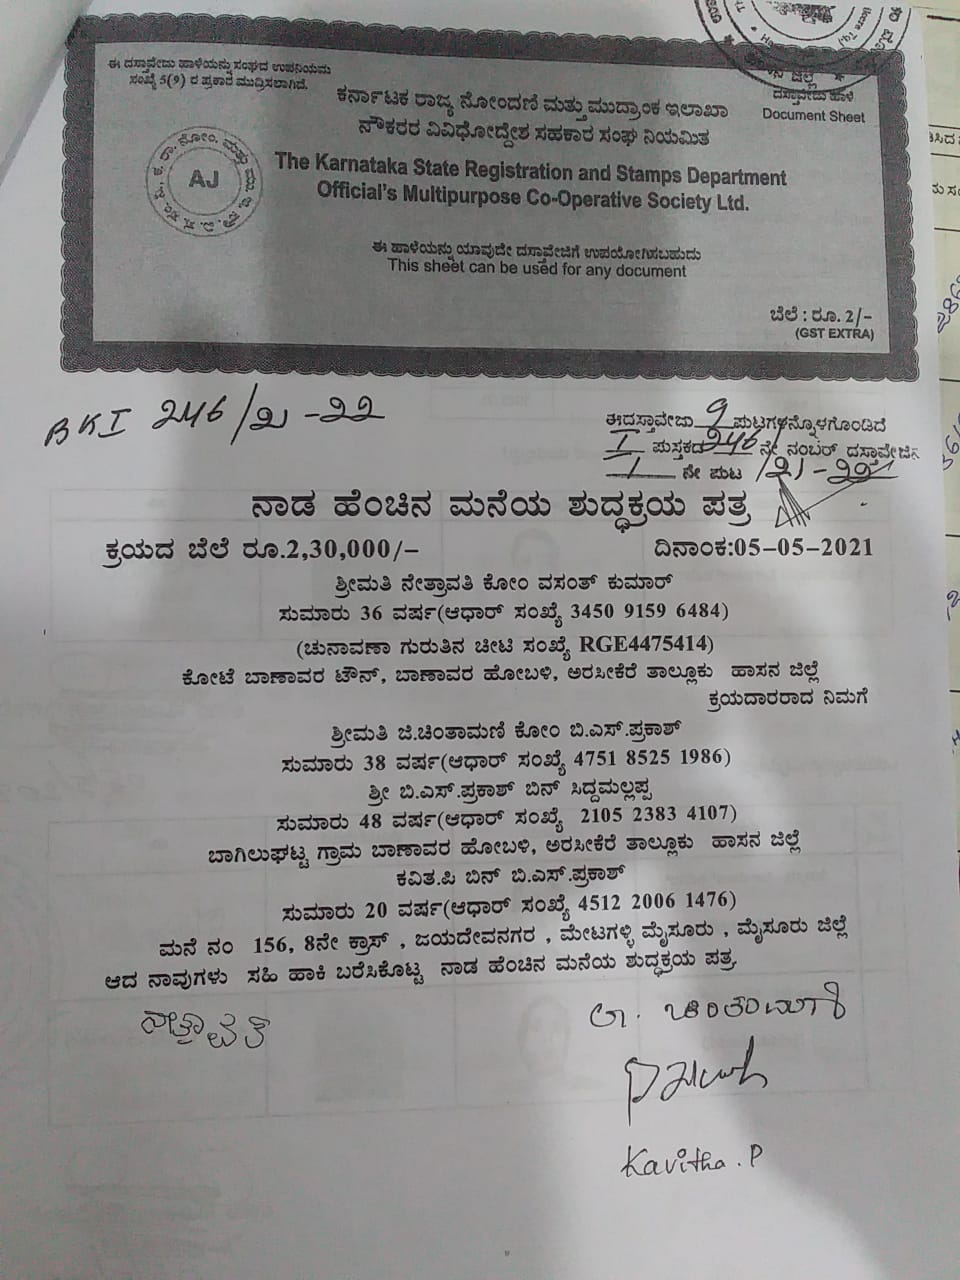 ಈ ದಸ್ತಾವೇಜು ಹಾಳೆಯನ್ನು ಸಂಘದ ಉಪನಿಯಮ
ಸಂಖ್ಯೆ 5(೪) ರ ಪ್ರಕಾರ ಮುದ್ರಿಸಲಾಗಿದೆ.
ದಸ್ತಾವೇಜು ಹಾಳೆ
Document Sheet
ಕರ್ನಾಟಕ ರಾಜ್ಯ ನೋಂದಣಿ ಮತ್ತು ಮುದ್ರಾಂಕ ಇಲಾಖಾ
ನೌಕರರ ವಿವಿಧೋದ್ದೇಶ ಸಹಕಾರ ಸಂಘ ನಿಯಮಿತ
AJ
The Karnataka State Registration and Stamps Department
Official's Multipurpose Co-Operative Society Ltd.
ಈ ಹಾಳೆಯನ್ನು ಯಾವುದೇ ದಸ್ತಾವೇಜಿಗೆ ಉಪಯೋಗಿಸಬಹುದು
This sheet can be used for any document
ಬೆಲೆ : ರೂ. 2/-
(GST EXTRA)
BKI 246/21-22
ಈದಸ್ತಾವೇಜು 9 ಪುಟಗಳನ್ನೊಳಗೊಂಡಿದೆ
I ಪುಸ್ತಕದ 246/ ನೇ ನಂಬರ್ ದಸ್ತಾವೇಜಿನ
1 ನೇ ಪುಟ /21-22
ನಾಡ ಹೆಂಚಿನ ಮನೆಯ ಶುದ್ಧಕ್ರಯ ಪತ್ರ
ಕ್ರಯದ ಬೆಲೆ ರೂ.2,30,000/- ದಿನಾಂಕ:05-05-2021
ಶ್ರೀಮತಿ ನೇತ್ರಾವತಿ ಕೋಂ ವಸಂತ್ ಕುಮಾರ್
ಸುಮಾರು 36 ವರ್ಷ(ಆಧಾರ್ ಸಂಖ್ಯೆ 3450 9159 6484)
(ಚುನಾವಣಾ ಗುರುತಿನ ಚೀಟಿ ಸಂಖ್ಯೆ RGE4475414)
ಕೋಟೆ ಬಾಣಾವರ ಟೌನ್, ಬಾಣಾವರ ಹೋಬಳಿ, ಅರಸೀಕೆರೆ ತಾಲ್ಲೂಕು ಹಾಸನ ಜಿಲ್ಲೆ
ಕ್ರಯದಾರರಾದ ನಿಮಗೆ
ಶ್ರೀಮತಿ ಜಿ.ಚಿಂತಾಮಣಿ ಕೋಂ ಬಿ.ಎಸ್.ಪ್ರಕಾಶ್
ಸುಮಾರು 38 ವರ್ಷ(ಆಧಾರ್ ಸಂಖ್ಯೆ 4751 8525 1986)
ಶ್ರೀ ಬಿ.ಎಸ್.ಪ್ರಕಾಶ್ ಬಿನ್ ಸಿದ್ದಮಲ್ಲಪ್ಪ
ಸುಮಾರು 48 ವರ್ಷ(ಆಧಾರ್ ಸಂಖ್ಯೆ 2105 2383 4107)
ಬಾಗಿಲುಘಟ್ಟ ಗ್ರಾಮ ಬಾಣಾವರ ಹೋಬಳಿ, ಅರಸೀಕೆರೆ ತಾಲ್ಲೂಕು ಹಾಸನ ಜಿಲ್ಲೆ
ಕವಿತ.ಪಿ ಬಿನ್ ಬಿ.ಎಸ್.ಪ್ರಕಾಶ್
ಸುಮಾರು 20 ವರ್ಷ(ಆಧಾರ್ ಸಂಖ್ಯೆ 4512 2006 1476)
ಮನೆ ನಂ 156, 8ನೇ ಕ್ರಾಸ್ , ಜಯದೇವನಗರ , ಮೇಟಗಳ್ಳಿ ಮೈಸೂರು , ಮೈಸೂರು ಜಿಲ್ಲೆ
ಆದ ನಾವುಗಳು ಸಹಿ ಹಾಕಿ ಬರೆಸಿಕೊಟ್ಟ ನಾಡ ಹೆಂಚಿನ ಮನೆಯ ಶುದ್ಧಕ್ರಯ ಪತ್ರ
ನೇತ್ರಾವತಿ
ಜಿ. ಚಿಂತಾಮಣಿ
Kavitha.P